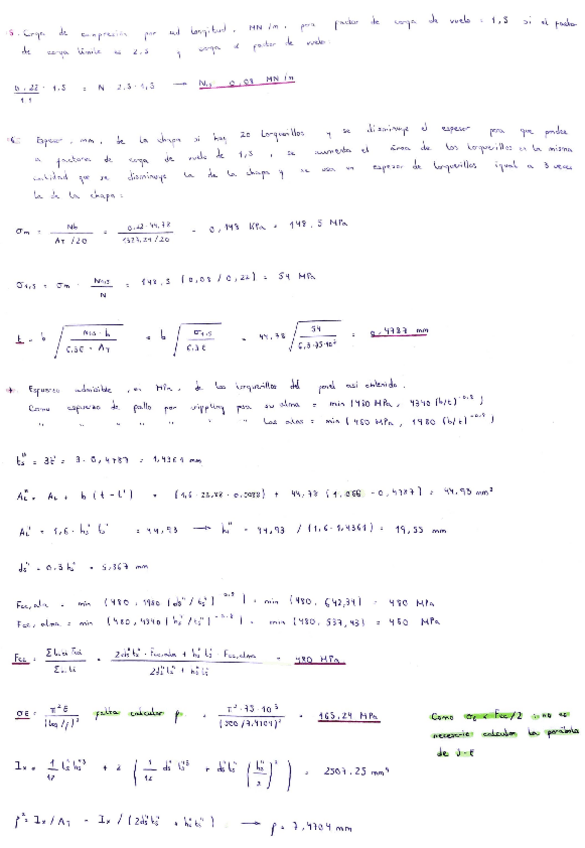 5. Carga de compresión por ud longitud, MN/m, para factor de carga de vuelo = 1,5 si el factor
de carga límite es 2,5 y carga ∝ factor de vuelo.
0,22/1,1 · 1,5 = N 2,5 · 1,5 → N₁,₅ = 0,08 MN/m
6. Espesor, mm, de la chapa si hay 20 larguerillos y se disminuye el espesor para que pandee
a factores de carga de vuelo de 1,5, se aumenta el área de los larguerillos en la misma
cantidad que se disminuye la de la chapa y se usa un espesor de larguerillos igual a 3 veces
la de la chapa:
σm = Nb / (A_T/20) = 0,22·44,78 / (1327,24/20) = 0,148 KPa = 148,5 MPa
σ₁,₅ = σm · N₁,₅/N = 148,5 (0,08/0,22) = 54 MPa
t = b √(N₁,₅·b / (6,3E·A_T)) = b √(σ₁,₅ / 6,3E) = 44,78 √(54 / (6,3·75·10³)) = 0,4787 mm
7. Esfuerzo admisible, en MPa, de los larguerillos del panel así obtenido.
Como esfuerzo de fallo por crippling para su alma = min (480 MPa, 4340 (h/t)^-0,8)
" " " " " " las alas = min (480 MPa, 1980 (b/t)^-0,8)
ts" = 3t' = 3 · 0,4787 = 1,4361 mm
As" = As + b (t - t') = (1,6 · 25,88 · 0,9088) + 44,78 (1,088 - 0,4787) = 44,93 mm²
As' = 1,6 · hs' ts' = 44,93 → hs" = 44,93 / (1,6 · 1,4361) = 19,55 mm
ds" = 0,3 hs" = 5,867 mm
Fcc,ala = min (480, 1980 (ds"/ts")^-0,8) = min (480, 642,34) = 480 MPa
Fcc,alma = min (480, 4340 (hs"/ts")^-0,8) = min (480, 537,43) = 480 MPa
Fcc = Σbi ti Fcci / Σbi ti = (2ds"ts" · Fcc,ala + hs"ts" · Fcc,alma) / (2ds"ts" + hs"ts") = 480 MPa
σE = π²E / (L/ρ)² falta calcular ρ = π²·75·10³ / (500/7,4704)² = 165,24 MPa
Como σE < Fcc/2 : no es
necesario calcular la parábola
de J-E
Ix = 1/12 ts" hs"³ + 2 (1/12 ds" ts"³ + ds"ts" (hs"/2)²) = 2507,25 mm⁴
ρ² = Ix/A_T = Ix / (2ds"ts" + hs"ts") → ρ = 7,4704 mm